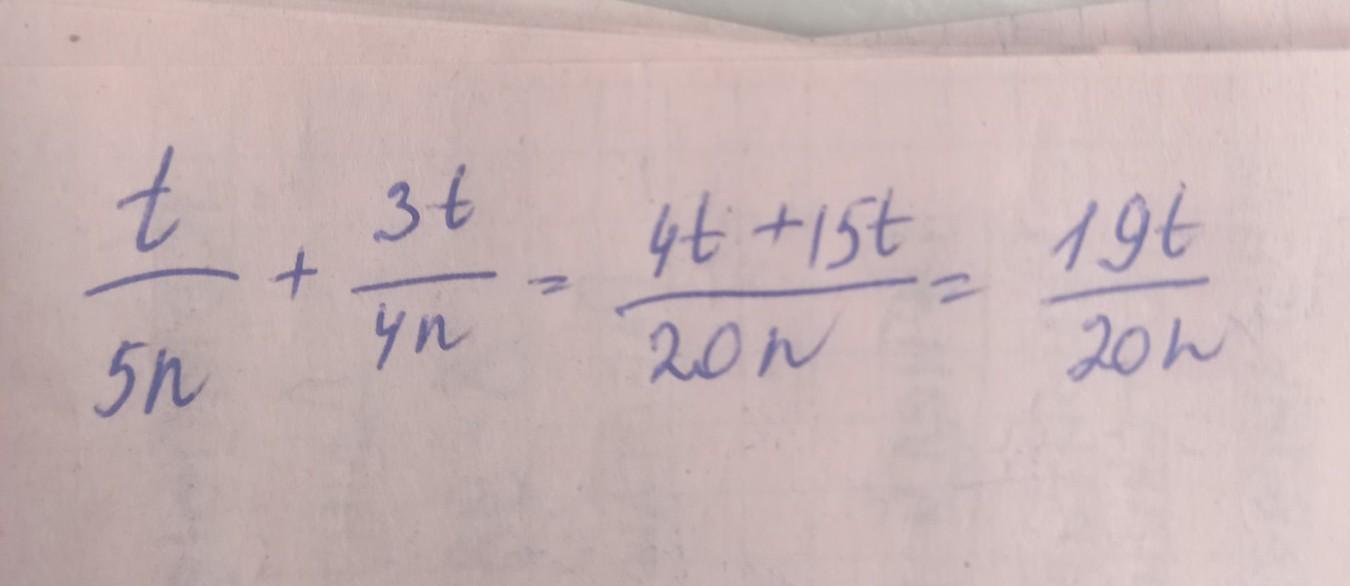 t/5n + 3t/4n = (4t + 15t)/20n = 19t/20n